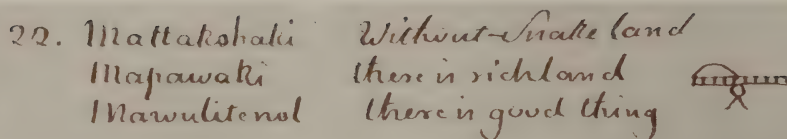 22. Mattakohaki Without-Snake land
Mapawaki there is richland
Mawulitenol there is good thing